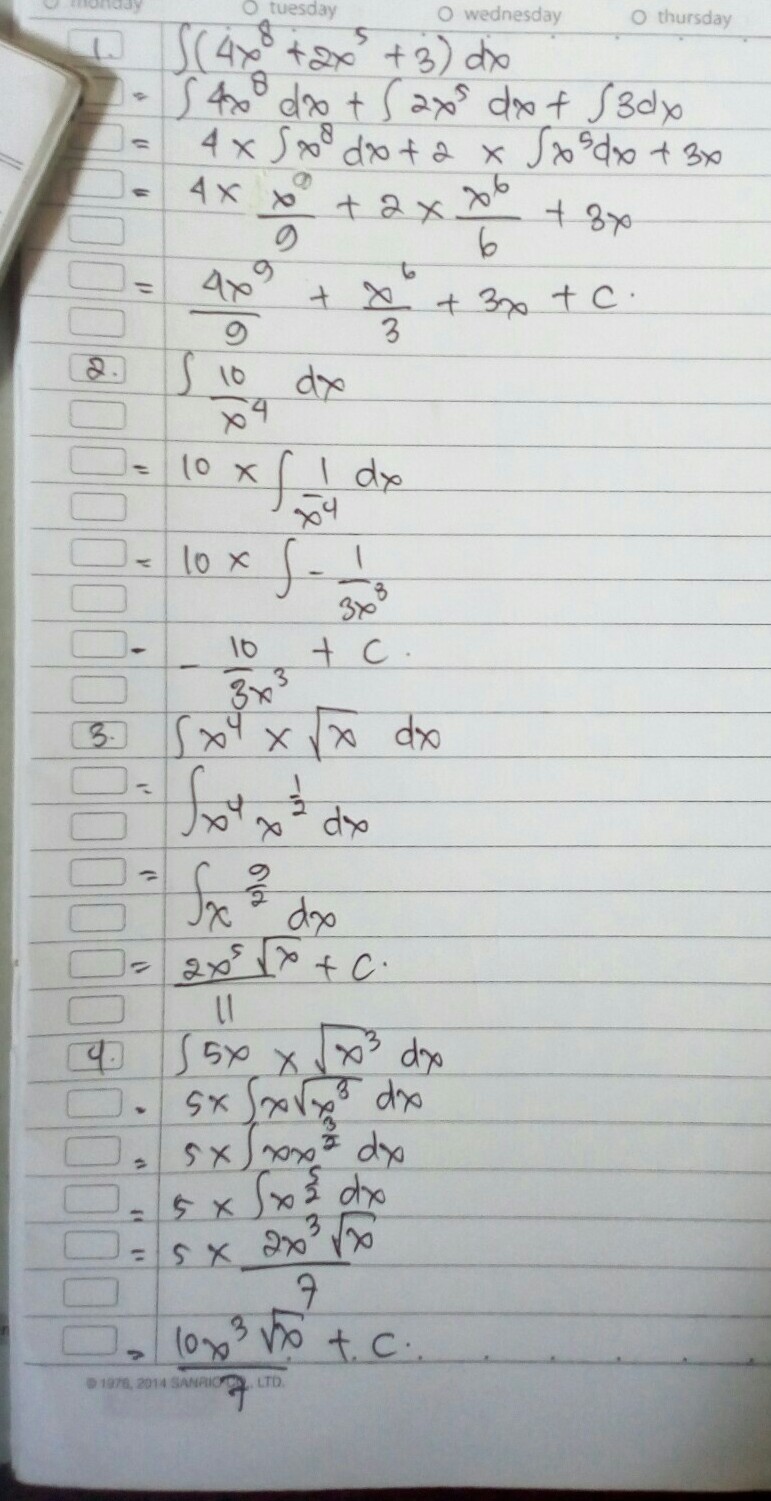 monday O tuesday O wednesday O thursday
1. ∫(4x⁸ + 2x⁵ + 3) dx
= ∫ 4x⁸ dx + ∫ 2x⁵ dx + ∫ 3dx
= 4 × ∫x⁸ dx + 2 × ∫x⁵dx + 3x
= 4 × x⁹/9 + 2 × x⁶/6 + 3x
= 4x⁹/9 + x⁶/3 + 3x + C.
2. ∫ 10/x⁴ dx
= 10 × ∫ 1/x⁴ dx
= 10 × ∫ - 1/3x³
- - 10/3x³ + C.
3. ∫x⁴ × √x dx
= ∫x⁴ x^(1/2) dx
= ∫x^(9/2) dx
= 2x⁵√x/11 + C.
4. ∫ 5x × √x³ dx
= 5 × ∫x√x³ dx
= 5 × ∫xx^(3/2) dx
= 5 × ∫x^(5/2) dx
= 5 × 2x³√x/7
= 10x³√x/7 + C.
© 1976, 2014 SANRIO CO., LTD.